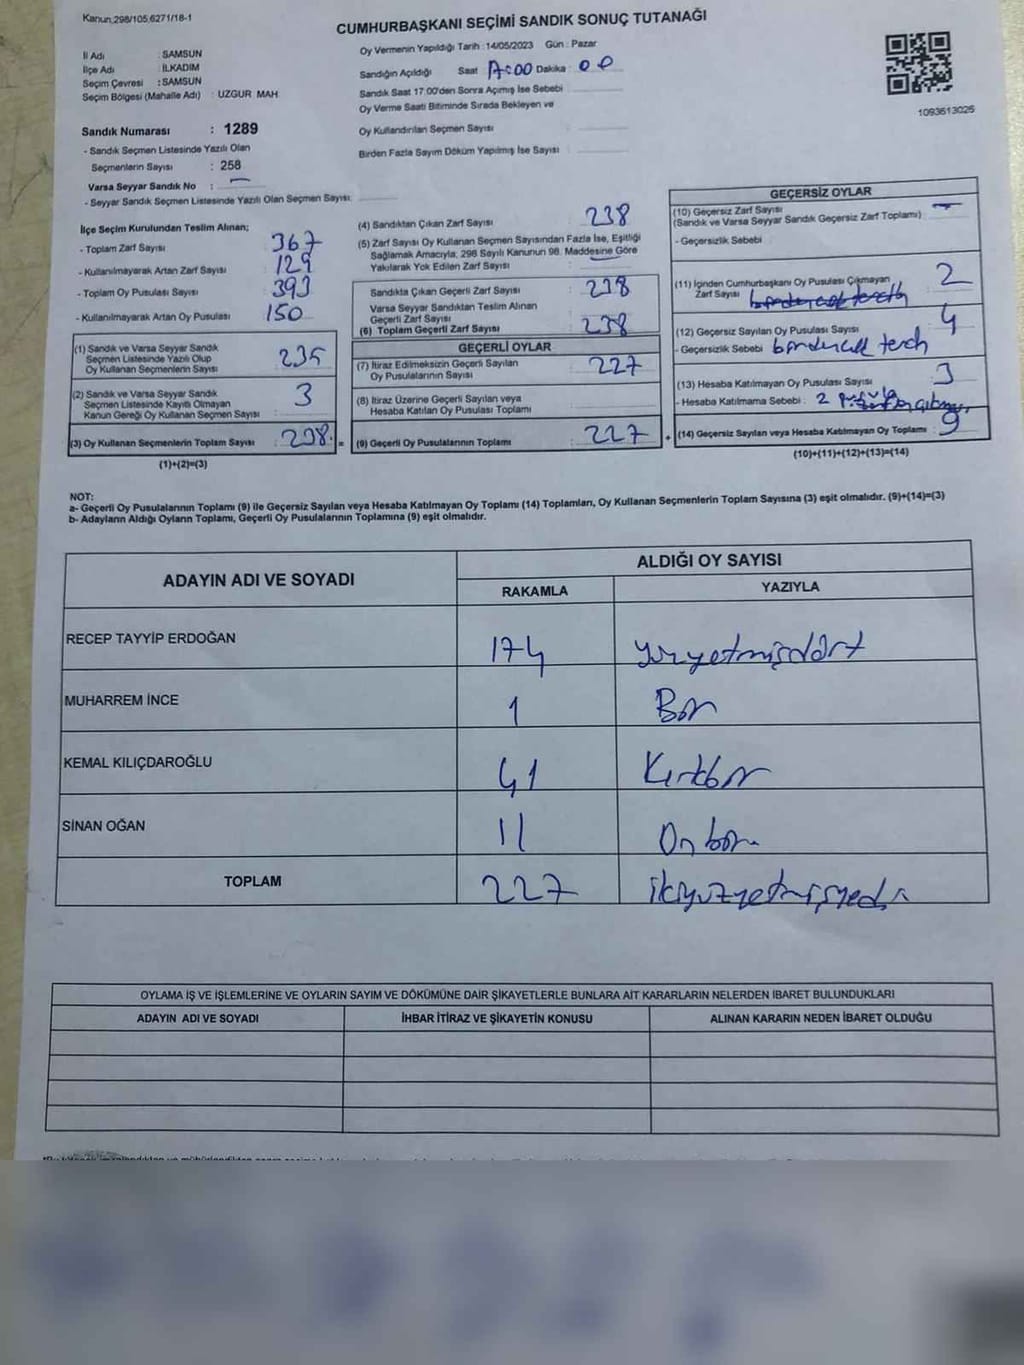 Kanun;298/105,6271/18-1
CUMHURBAŞKANI SEÇİMİ SANDIK SONUÇ TUTANAĞI
İl Adı : SAMSUN
İlçe Adı : İLKADIM
Seçim Çevresi : SAMSUN
Seçim Bölgesi (Mahalle Adı) : UZGUR MAH
Sandık Numarası : 1289
- Sandık Seçmen Listesinde Yazılı Olan
Seçmenlerin Sayısı : 258
Varsa Seyyar Sandık No : —
- Seyyar Sandık Seçmen Listesinde Yazılı Olan Seçmen Sayısı:
Oy Vermenin Yapıldığı Tarih :14/05/2023 Gün : Pazar
Sandığın Açıldığı Saat 17:00 Dakika : 00
Sandık Saat 17:00'den Sonra Açılmış İse Sebebi
Oy Verme Saati Bitiminde Sırada Bekleyen ve
Oy Kullandırılan Seçmen Sayısı :
Birden Fazla Sayım Döküm Yapılmış İse Sayısı :
1093613025
İlçe Seçim Kurulundan Teslim Alınan;
- Toplam Zarf Sayısı : 367
- Kullanılmayarak Artan Zarf Sayısı : 129
- Toplam Oy Pusulası Sayısı : 393
- Kullanılmayarak Artan Oy Pusulası : 150
(1) Sandık ve Varsa Seyyar Sandık
Seçmen Listesinde Yazılı Olup
Oy Kullanan Seçmenlerin Sayısı : 235
(2) Sandık ve Varsa Seyyar Sandık
Seçmen Listesinde Kayıtlı Olmayan
Kanun Gereği Oy Kullanan Seçmen Sayısı : 3
(3) Oy Kullanan Seçmenlerin Toplam Sayısı : 238. =
(1)+(2)=(3)
(4) Sandıktan Çıkan Zarf Sayısı : 238
(5) Zarf Sayısı Oy Kullanan Seçmen Sayısından Fazla İse, Eşitliği
Sağlamak Amacıyla; 298 Sayılı Kanunun 98. Maddesine Göre
Yakılarak Yok Edilen Zarf Sayısı : —
Sandıkta Çıkan Geçerli Zarf Sayısı : 238
Varsa Seyyar Sandıktan Teslim Alınan
Geçerli Zarf Sayısı :
(6) Toplam Geçerli Zarf Sayısı : 238
GEÇERLİ OYLAR
(7) İtiraz Edilmeksizin Geçerli Sayılan
Oy Pusulalarının Sayısı : 227
(8) İtiraz Üzerine Geçerli Sayılan veya
Hesaba Katılan Oy Pusulası Toplamı :
(9) Geçerli Oy Pusulalarının Toplamı : 227 +
GEÇERSİZ OYLAR
(10) Geçersiz Zarf Sayısı : —
(Sandık ve Varsa Seyyar Sandık Geçersiz Zarf Toplamı)
- Geçersizlik Sebebi :
(11) İçinden Cumhurbaşkanı Oy Pusulası Çıkmayan
Zarf Sayısı : 2
(12) Geçersiz Sayılan Oy Pusulası Sayısı : 4
- Geçersizlik Sebebi : birden çok tercih
(13) Hesaba Katılmayan Oy Pusulası Sayısı : 3
- Hesaba Katılmama Sebebi : 2
(14) Geçersiz Sayılan veya Hesaba Katılmayan Oy Toplamı : 9
(10)+(11)+(12)+(13)=(14)
NOT:
a- Geçerli Oy Pusulalarının Toplamı (9) ile Geçersiz Sayılan veya Hesaba Katılmayan Oy Toplamı (14) Toplamları, Oy Kullanan Seçmenlerin Toplam Sayısına (3) eşit olmalıdır. (9)+(14)=(3)
b- Adayların Aldığı Oyların Toplamı, Geçerli Oy Pusulalarının Toplamına (9) eşit olmalıdır.
ADAYIN ADI VE SOYADI ALDIĞI OY SAYISI
RAKAMLA YAZIYLA
RECEP TAYYİP ERDOĞAN 174 yüzyetmişdört
MUHARREM İNCE 1 Bir
KEMAL KILIÇDAROĞLU 41 Kırkbir
SİNAN OĞAN 11 On bir
TOPLAM 227 ikiyüzyetmişyedi
OYLAMA İŞ VE İŞLEMLERİNE VE OYLARIN SAYIM VE DÖKÜMÜNE DAİR ŞİKAYETLERLE BUNLARA AİT KARARLARIN NELERDEN İBARET BULUNDUKLARI
ADAYIN ADI VE SOYADI İHBAR İTİRAZ VE ŞİKAYETİN KONUSU ALINAN KARARIN NEDEN İBARET OLDUĞU